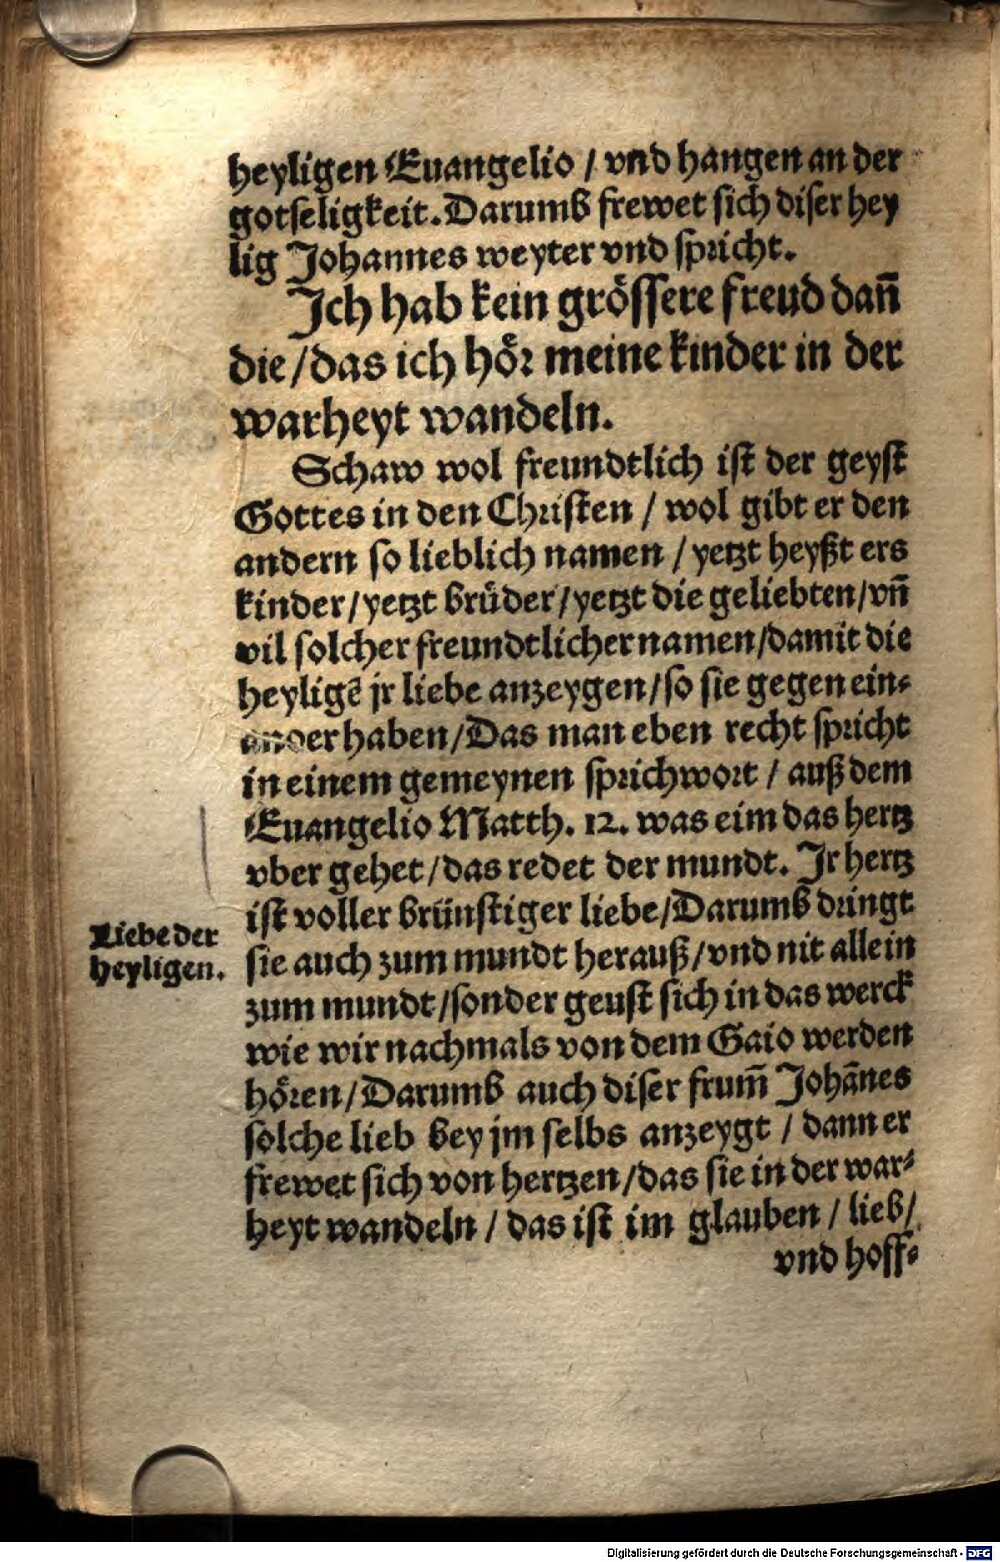 heyligen Euangelio / vnd hangen an der
gotseligkeit. Darumb frewet sich diser hey
lig Johannes weyter vnd spricht.
Ich hab kein grössere freud dañ
die / das ich hör meine kinder in der
warheyt wandeln.
Schaw wol freundtlich ist der geyst
Gottes in den Christen / wol gibt er den
andern so lieblich namen / yetzt heyßt ers
kinder / yetzt brüder / yetzt die geliebten / vñ
vil solcher freundtlicher namen / damit die
heyligẽ jr liebe anzeygen / so sie gegen ein⸗
ander haben / Das man eben recht spricht
in einem gemeynen sprichwort / auß dem
Euangelio Matth. 12. was eim das hertz
vber gehet / das redet der mundt. Jr hertz
ist voller brünstiger liebe / Darumb dringt
Liebe der
heyligen.
sie auch zum mundt herauß / vnd nit allein
zum mundt / sonder geust sich in das werck
wie wir nachmals von dem Gaio werden
hören / Darumb auch diser frum̃ Johãnes
solche lieb bey jm selbs anzeygt / dann er
frewet sich von hertzen / das sie in der war⸗
heyt wandeln / das ist im glauben / lieb /
vnd hoff⸗
Digitalisierung gefördert durch die Deutsche Forschungsgemeinschaft - DFG